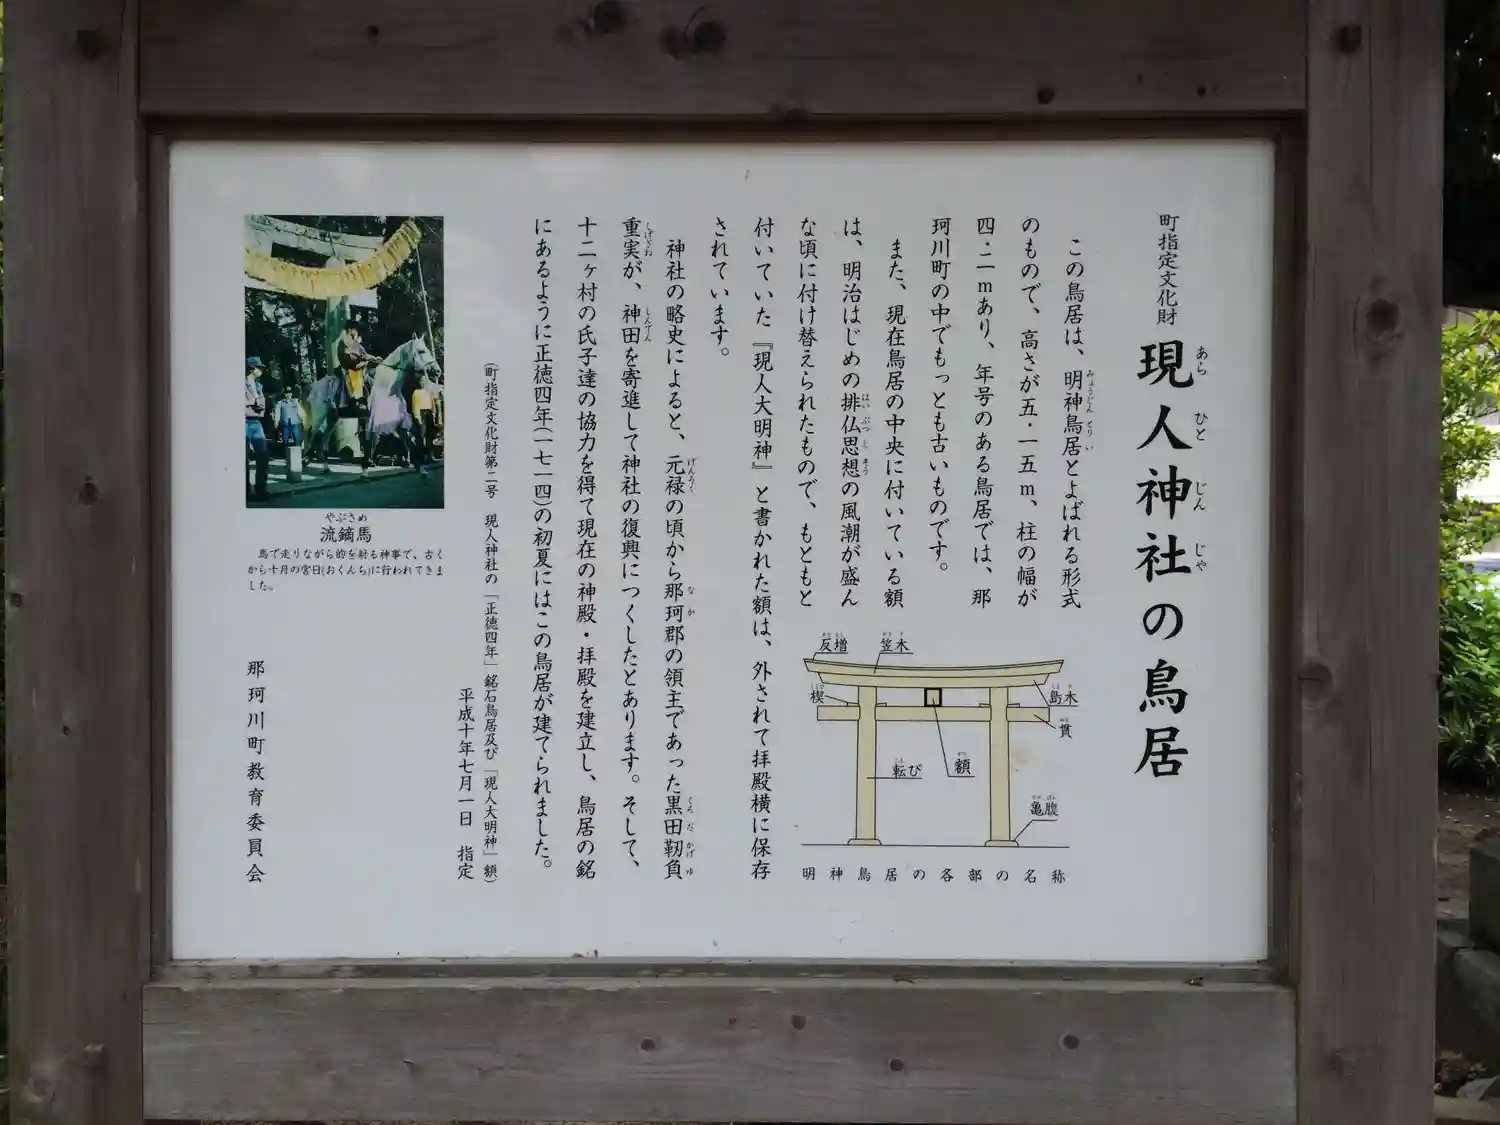 町指定文化財 現人神社の鳥居
あら ひと じん じゃ
この鳥居は、明神鳥居とよばれる形式
みょうじん とり い
のもので、高さが五・一五m、柱の幅が
四・二mあり、年号のある鳥居では、那
珂川町の中でもっとも古いものです。
また、現在鳥居の中央に付いている額
は、明治はじめの排仏思想の風潮が盛ん
はい ぶつ し そう
な頃に付け替えられたもので、もともと
付いていた『現人大明神』と書かれた額は、外されて拝殿横に保存
されています。
神社の略史によると、元禄の頃から那珂郡の領主であった黒田靭負
げんろく な か くろ だ かげ ゆ
重実が、神田を寄進して神社の復興につくしたとあります。そして、
しげざね しんでん
十二ヶ村の氏子達の協力を得て現在の神殿・拝殿を建立し、鳥居の銘
にあるように正徳四年(一七一四)の初夏にはこの鳥居が建てられました。
(町指定文化財第二号 現人神社の「正徳四年」銘石鳥居及び「現人大明神」額)
平成十年七月一日 指定
反増
笠木
楔
島木
貫
額
転び
亀腹
明神鳥居の各部の名称
やぶさめ
流鏑馬
馬で走りながら的を射る神事で、古く
から十月の宮日(おくんち)に行われてきま
した。
那珂川町教育委員会